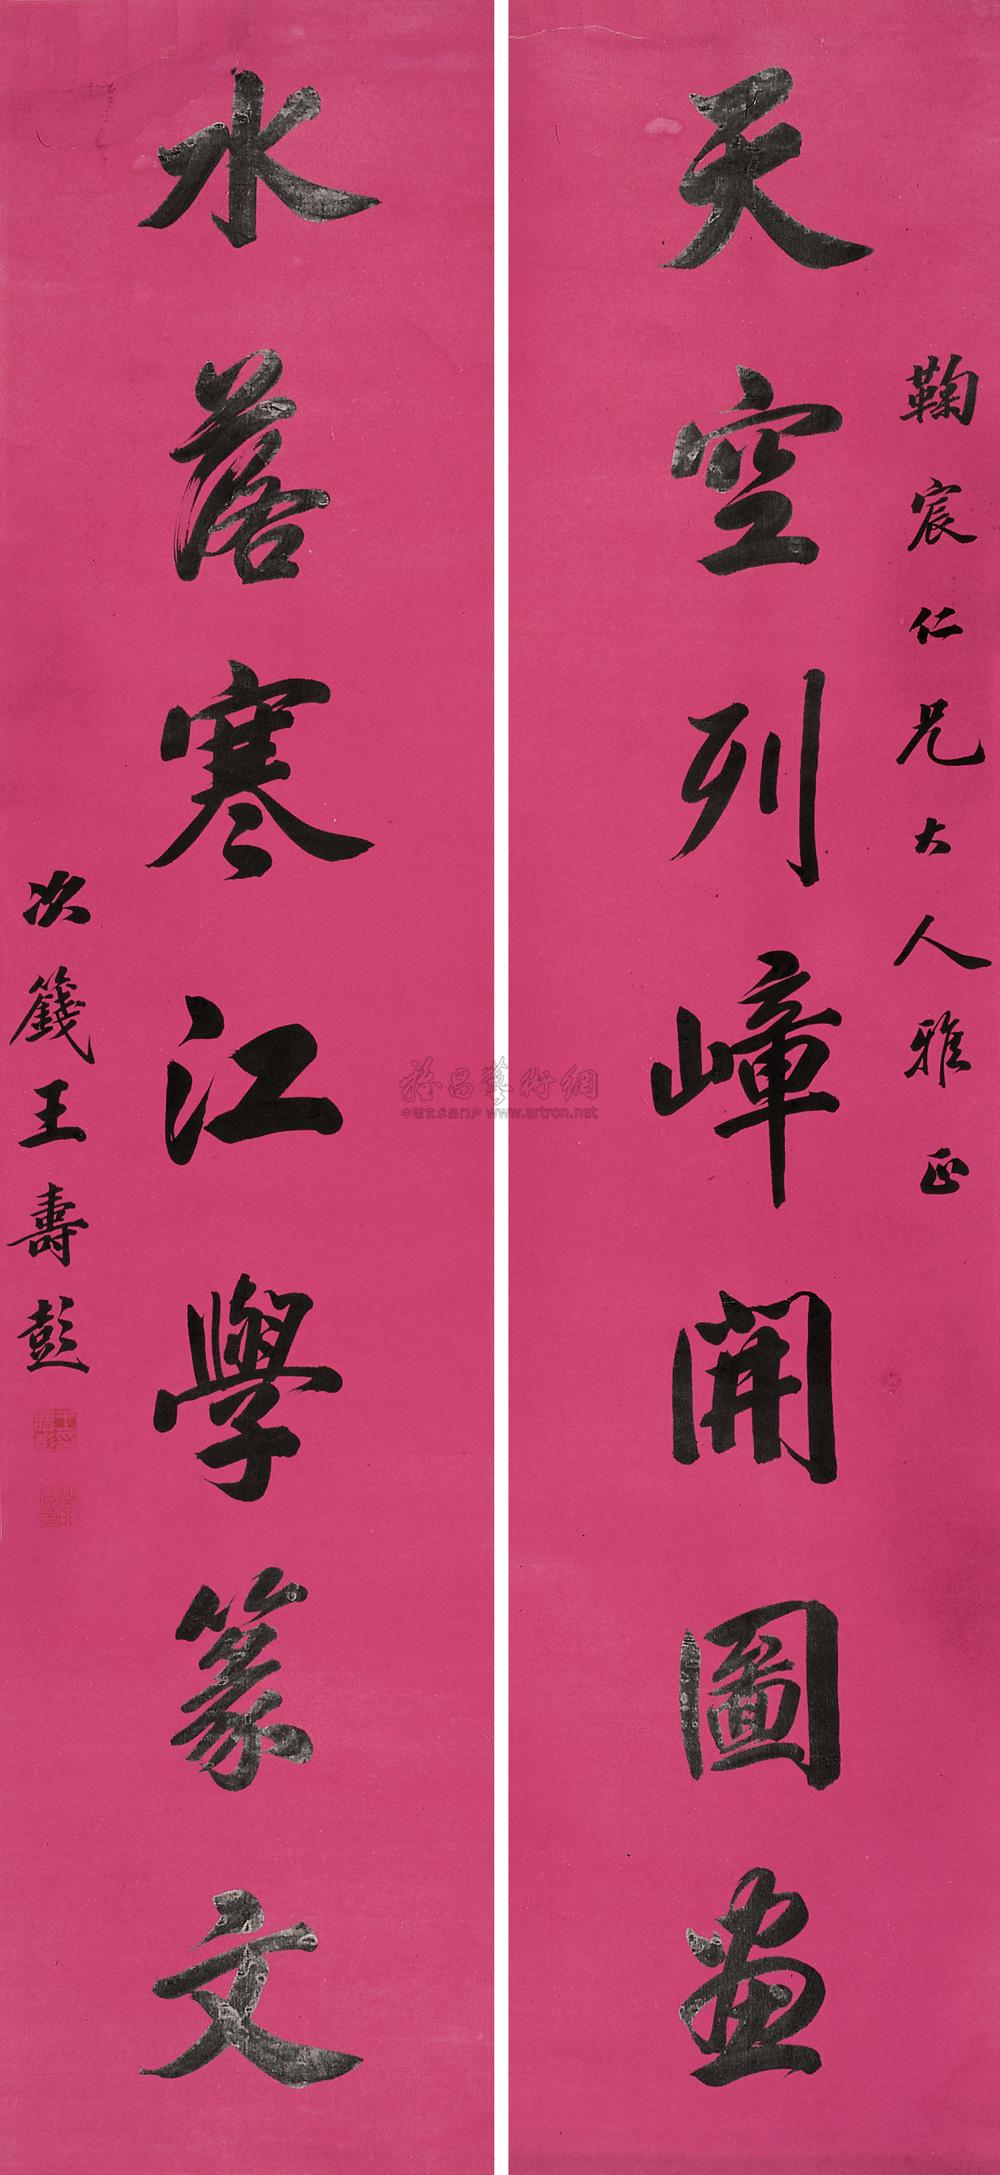 鞠宸仁兄大人雅正
天空列嶂開圖畫
水落寒江學篆文
次籛王壽彭
雅昌藝術網
中国艺术品门户 www.artron.net